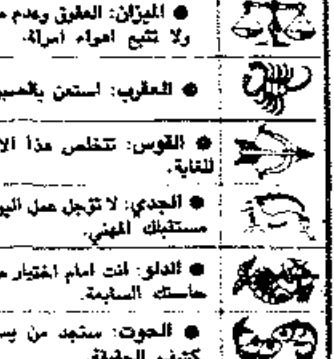 ● الميزان: العقوق وعدم
ولا تتبع اهواء امرأة.
● العقرب: استعن بالصبر
● القوس: تتخلص هذا
للغاية.
● الجدي: لا تؤجل عمل اليو
مستقبلك المهني.
● الدلو: انت امام اختيار
حاستك السابعة.
● الحوت: ستجد من
الحقيقة